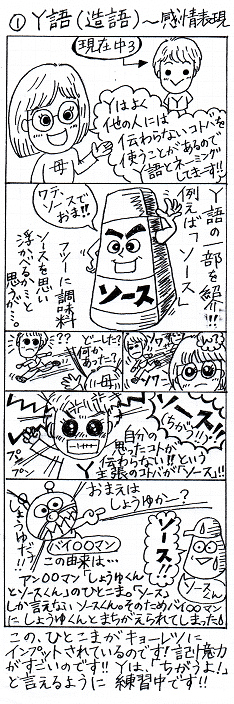 ① Y語(造語)〜感情表現
現在中3
Yはよく
他の人には
伝わらないコトバを
使うことがあるので
Y語とネーミング
してまーす!!
母
Y語の一部を紹介!!
例えば「ソース」
ワテ、
ソースで
おま!!
ソース
フツーに調味料
ソースを思い
浮かべるか〜と
思うが…。
??
どーした?
何か
あった?
母
ソース!!
(ちがう!!)
自分の
思ったコトが
伝わらない!!という
主張のコトバが「ソース」!!
プン
プン
Y
おまえは
しょうゆか〜?
しょうゆだ!!
バイ○○マン
ソース!!
ソースくん
この由来は…
アン○○マン「しょうゆくん
とソースくん」のひとこま。「ソース」
しか言えないソースくん。そのためバイ○○マン
にしょうゆくんとまちがえられてしまった
この、ひとこまがキョーレツに
インプットされているのです!記憶力
がすごいのです!!Yは、「ちがうよ!」
と言えるように練習中です!!